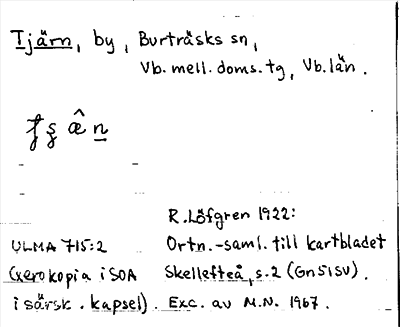 Tjärn, by, Burträsks sn,
Vb. mell. doms. tg, Vb. län.
R. Löfgren 1922:
ULMA 715:2 Ortn.-saml. till kartbladet
(xerokopia i SOA Skellefteå, s. 2 (Gn51SV).
i särsk. kapsel). Exc. av M.N. 1967.